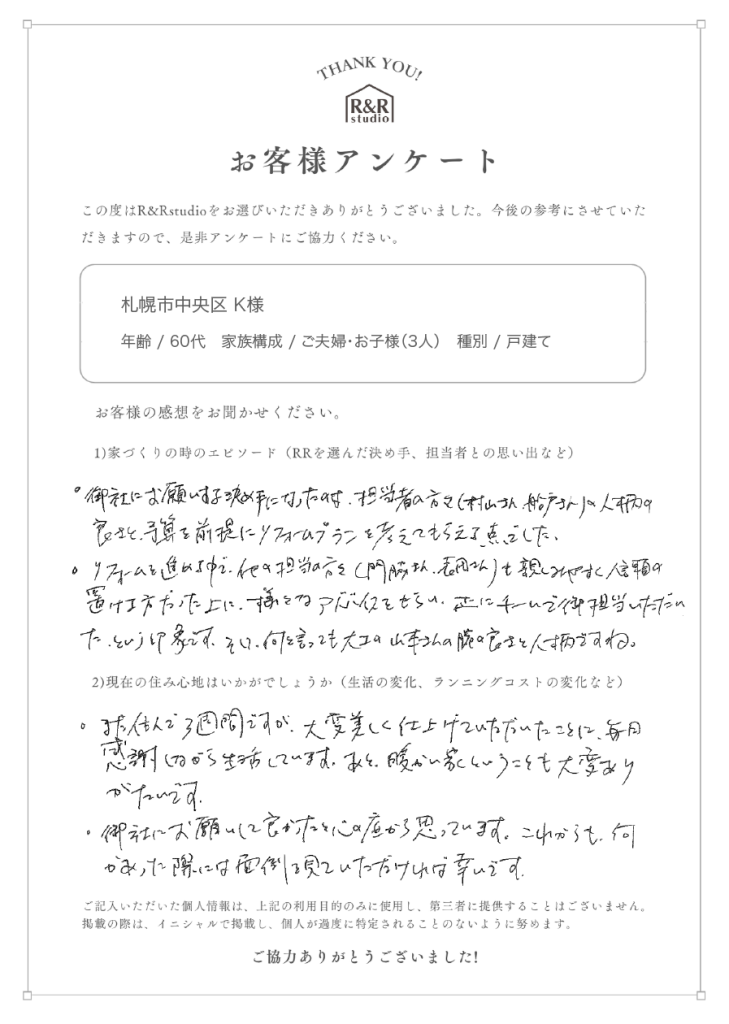 THANK YOU!
R&R
studio
お客様アンケート
この度はR&Rstudioをお選びいただきありがとうございました。今後の参考にさせていた
だきますので、是非アンケートにご協力ください。
札幌市中央区 K様
年齢 / 60代　家族構成 / ご夫婦・お子様（3人）　種別 / 戸建て
お客様の感想をお聞かせください。
1)家づくりの時のエピソード（RRを選んだ決め手、担当者との思い出など）
◦ 御社にお願いする決め手になったのは、担当者の方々（村山さん、船戸さん）の人柄の
良さと、予算を前提にリフォームプランを考えてもらえる点でした。
◦ リフォームを進める中で、他の担当の方々（門脇さん、さん）も親しみやすく信頼の
置ける方だった上に、様々なアドバイスをもらい、正にチームで御担当いただい
た、という印象です。そして、何と言っても大工の山本さんの腕の良さと人柄ですね。
2)現在の住み心地はいかがでしょうか（生活の変化、ランニングコストの変化など）
◦ まだ住んで3週間ですが、大変美しく仕上げていただいたことに、毎日
感謝しながら生活しています。あと、暖かい家ということも大変あり
がたいです。
◦ 御社にお願いして良かったと心の底から思っています。これからも、何
かあった際には面倒を見ていただければ幸いです。
ご記入いただいた個人情報は、上記の利用目的のみに使用し、第三者に提供することはございません。
掲載の際は、イニシャルで掲載し、個人が過度に特定されることのないように努めます。
ご協力ありがとうございました!